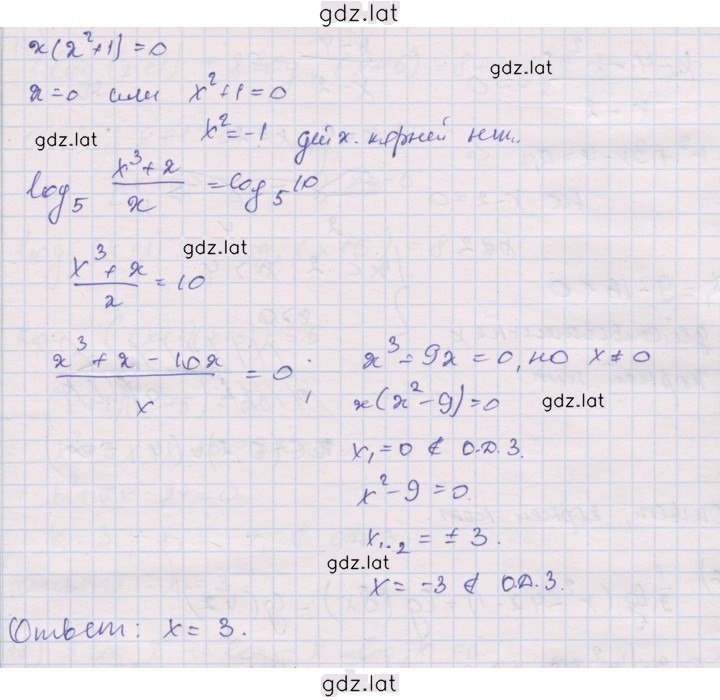 gdz.lat
x(x²+1)=0
gdz.lat
x=0 или x²+1=0
gdz.lat
x²=-1 дейх. корней нет.
log₅ (x³+x)/x = log₅10
gdz.lat
(x³+x)/x = 10
(x³+x-10x)/x = 0;
x³-9x=0, но x≠0
x(x²-9)=0
gdz.lat
x₁=0 ∉ О.Д.З.
x²-9=0
x₁,₂ = ±3.
gdz.lat
x=-3 ∉ О.Д.З.
Ответ: x=3.
gdz.lat